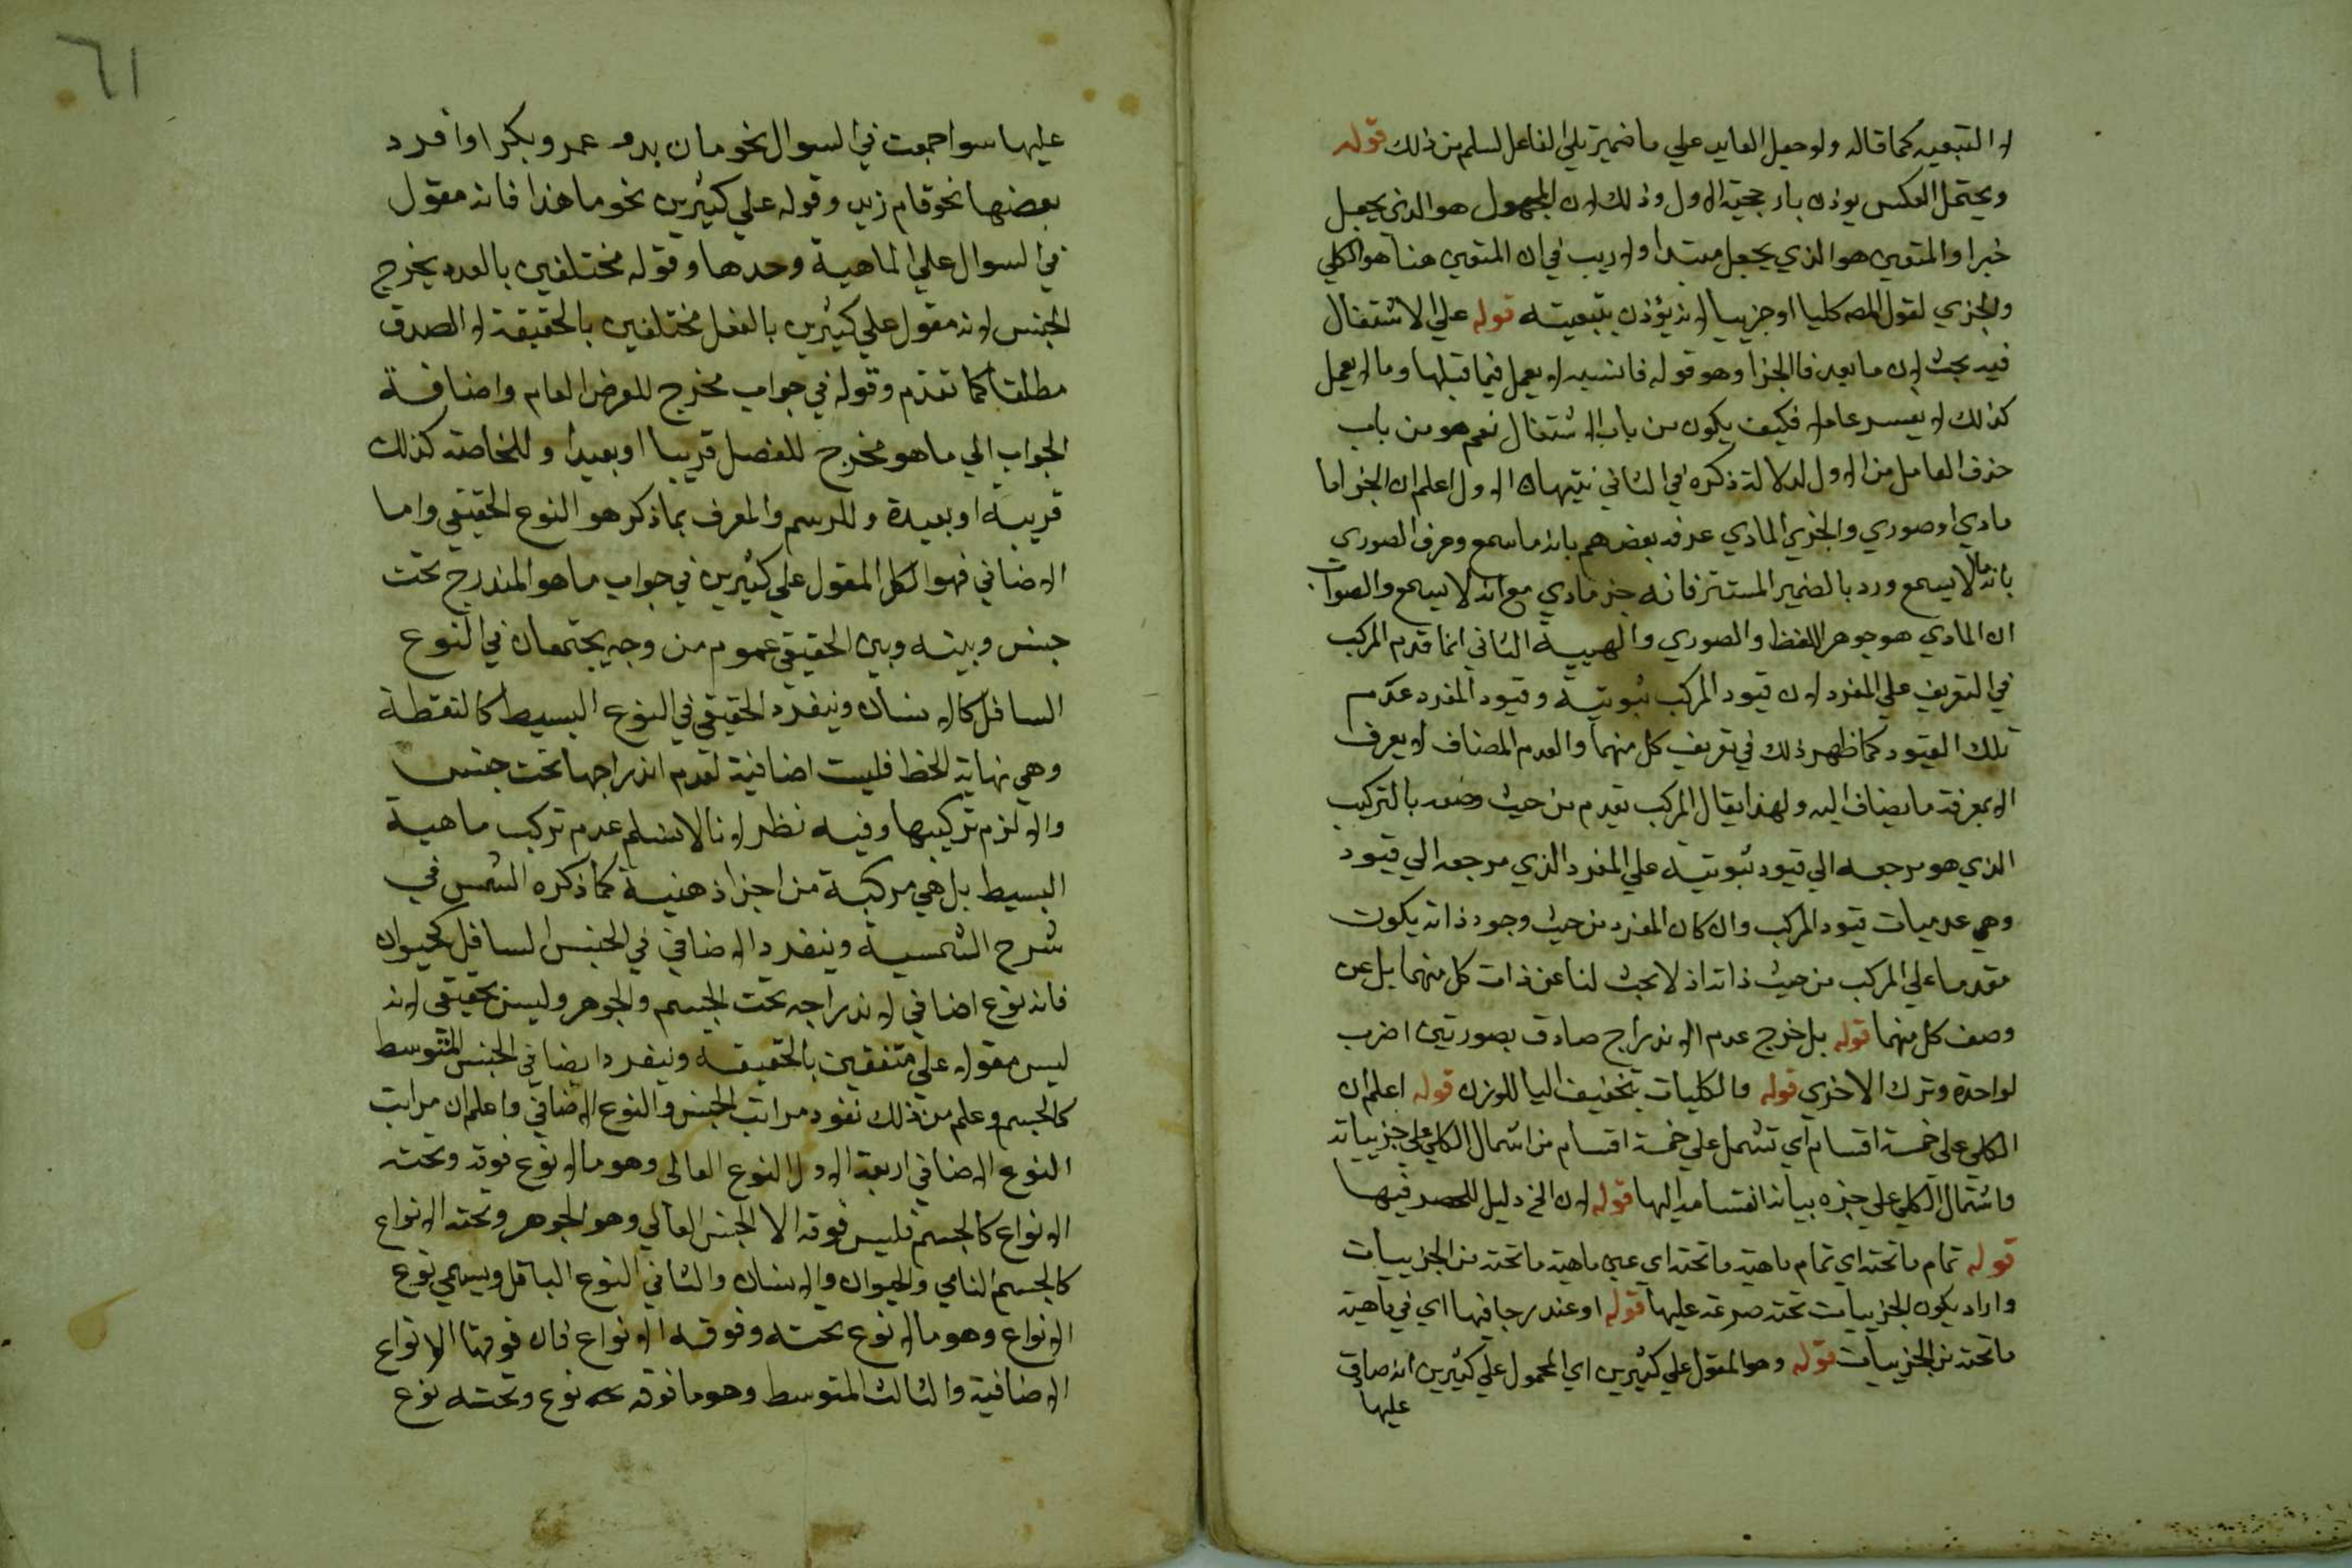 لا التبعيه كما قاله ولو جعل العايد علي ما ضمير تلي الفاعل لسلم من ذلك قوله
ويحتمل العكس يوذن بارجحية الاول وذلك لان المجهول هو الذي يجعل
خبرا والمتعين هو الذي يجعل مبتدا ولا ريب في ان المتعين هنا هو الكلي
والجزي لقول المصه كليا او جزييا لانه يؤذن بتبعيته قوله علي الاشتغال
فيه بحث لان ما بعد فا الجزا وهو قوله فانسبه لا يعمل فيما قبلها وما لا يعمل
كذلك لا يفسر عاملا فكيف يكون من باب الاشتغال نعم هو من باب
حذف العامل من الاول لدلالة ذكره في الثاني تنبيهان الاول اعلم ان الجزاما
مادي او صوري والجزي المادي عرفه بعضهم بانه ما سمع وعرف الصوري
بانه ما لا يسمع ورد بالضمير المستتر فانه جز مادي مع انه لا يسمع والصواب
ان المادي هو جوهر اللفظ والصوري والهيية الثاني انما قدم المركب
في التعريف علي المفرد لان قيود المركب ثبوتية وقيود المفرد عدم
تلك القيود كما ظهر ذلك في تعريف كل منهما والعدم المضاف لا يعرف
الا بمعرفة ما يضاف اليه ولهذا يقال المركب تقدم من حيث وصفه بالتركيب
الذي هو مرجعه الي قيود ثبوتية علي المفرد الذي مرجعه الي قيود
وهي عدميات قيود المركب وان كان المفرد من حيث وجود ذاته يكون
مقدما علي المركب من حيث ذاته اذ لا بحث لنا عن ذات كل منهما بل عن
وصف كل منهما قوله بل خرج عدم الاندراج صادق بصورتين اضرب
لواحدة وترك الاخري قوله والكليات بتخفيف اليا للوزن قوله اعلم ان
الكلي علي خمسة اقسام اي تشمل علي خمسة اقسام من اشمال الكلي علي جزيياته
واشتمال الكلي علي جزه بيانه انقسامه اليها قوله لان الخ دليل للحصر فيها
قوله تمام ما تحته اي تمام ماهية ما تحته اي عين ماهية ما تحته من الجزييات
واراد بكون الجزييات تحته صدقه عليها قوله او مندرجا فيها اي في ماهية
ما تحته من الجزييات قوله وهو المقول علي كثيرين اي المحمول علي كثيرين انه صادق
عليها
٦١
عليها سوا جمعت في السوال نحو ما زيد وعمرو وبكر او افرد
بعضها نحو قام زيد وقوله علي كثيرين نحو ما هذا فانه مقول
في السوال علي الماهية وحدها وقوله مختلفين بالعدد يخرج
الجنس لانه مقول علي كثيرين بالفعل مختلفين بالحقيقة لا الصدق
مطلقا كما تقدم وقوله في جواب مخرج للعرض العام واضافة
الجواب الي ما هو مخرج للفصل قريبا او بعيدا وللخاصة كذلك
قريبة او بعيدة وللرسم والمعرف بما ذكر هو النوع الحقيقي واما
الاضافي فهو الكل المقول علي كثيرين في جواب ما هو المندرج تحت
جنس وبينه وبين الحقيقي عموم من وجه يجتمعان في النوع
السافل كالانسان وينفرد الحقيقي في النوع البسيط كالنقطة
وهي نهاية الخط فليست اضافية لعدم اندراجها تحت جنس
والا لزم تركيبها وفيه نظر لانا لا نسلم عدم تركب ماهية
البسيط بل هي مركبة من اجزا ذهنية كما ذكره الشمس في
شرح الشمسية وينفرد الاضافي في الجنس السافل كحيوان
فانه نوع اضافي لاندراجه تحت الجسم والجوهر وليس بحقيقي لانه
ليس مقولا علي متفقين بالحقيقة وينفرد ايضا في الجنس المتوسط
كالجسم وعلم من ذلك نفود مراتب الجنس والنوع الاضافي واعلم ان مراتب
النوع الاضافي اربعة الاول النوع العالي وهو ما لا نوع فوقه وتحته
الانواع كالجسم فليس فوقه الا الجنس العالي وهو الجوهر وتحته الانواع
كالجسم النامي والحيوان والانسان والثاني النوع السافل ويسمي نوع
الانواع وهو ما لا نوع تحته وفوقه الانواع فان فوقها الانواع
الاضافية والثالث المتوسط وهو ما فوقه نوع وتحته نوع